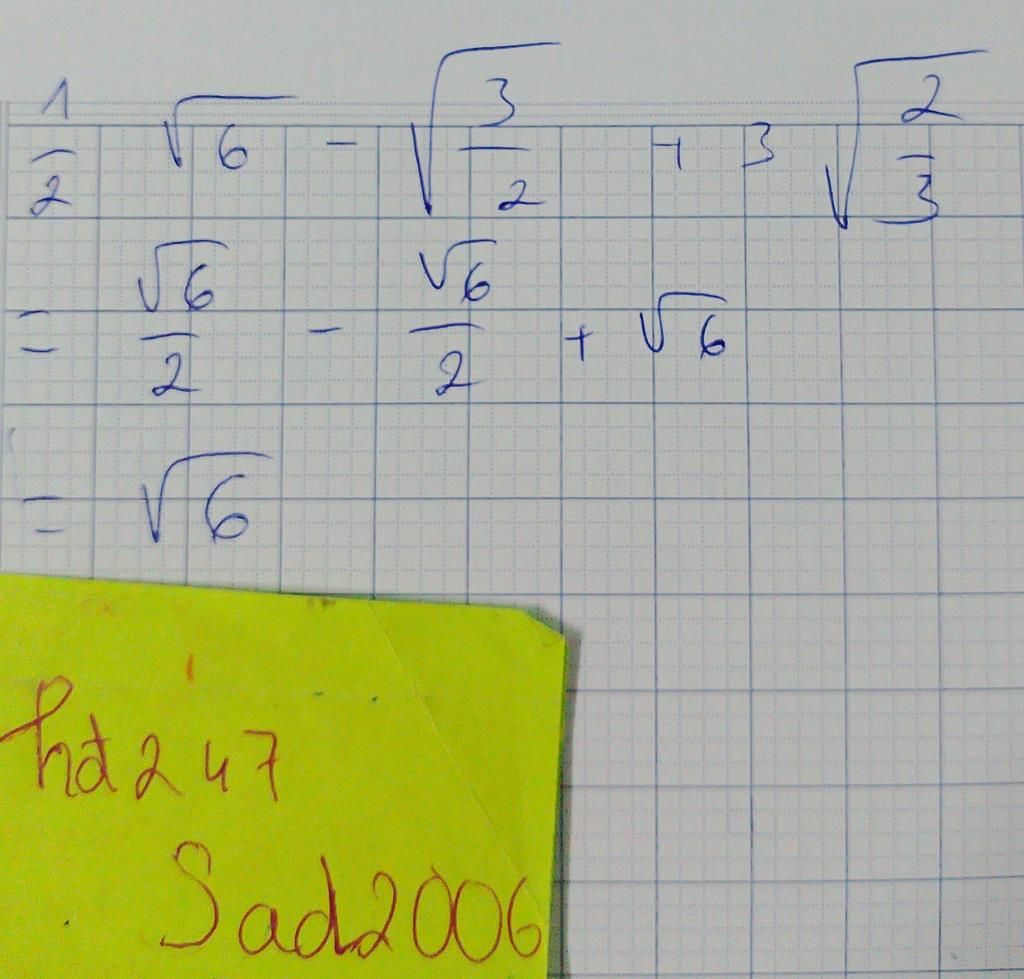 1/2 √6 - √(3/2) + 3 √(2/3)
= √6/2 - √6/2 + √6
= √6
hd247
Sad2006